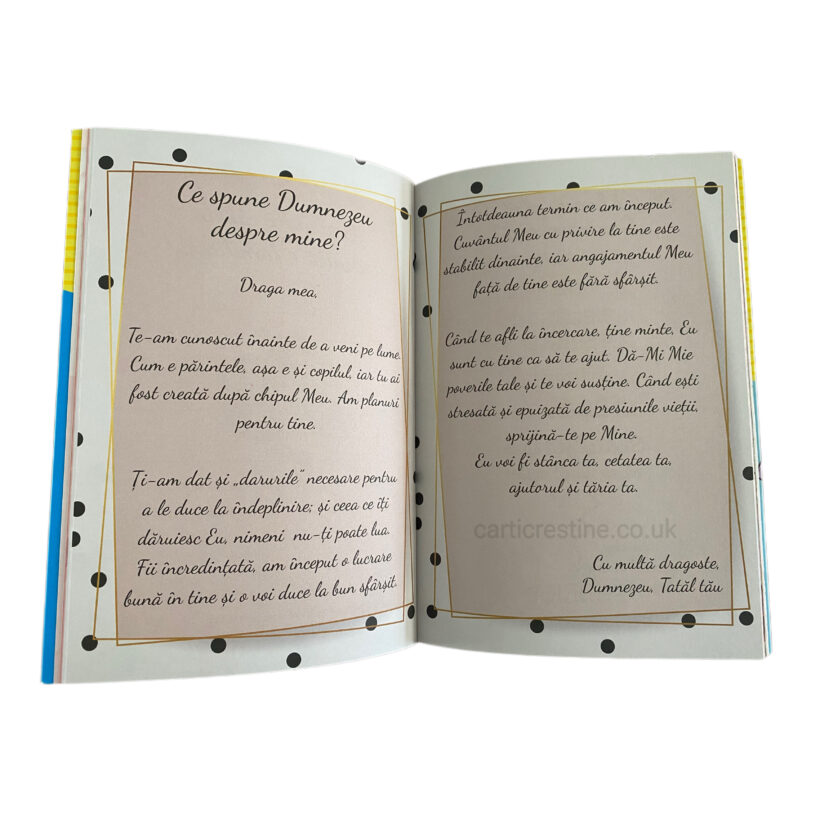 Ce spune Dumnezeu
despre mine?
Draga mea,
Te-am cunoscut înainte de a veni pe lume.
Cum e părintele, așa e și copilul, iar tu ai
fost creată după chipul Meu. Am planuri
pentru tine.
Ți-am dat și „darurile” necesare pentru
a le duce la îndeplinire; și ceea ce îți
dăruiesc Eu, nimeni nu-ți poate lua.
Fii încredințată, am început o lucrare
bună în tine și o voi duce la bun sfârșit.
Întotdeauna termin ce am început.
Cuvântul Meu cu privire la tine este
stabilit dinainte, iar angajamentul Meu
față de tine este fără sfârșit.
Când te afli la încercare, ține minte, Eu
sunt cu tine ca să te ajut. Dă-Mi Mie
poverile tale și te voi susține. Când ești
stresată și epuizată de presiunile vieții,
sprijină-te pe Mine.
Eu voi fi stânca ta, cetatea ta,
ajutorul și tăria ta.
carticrestine.co.uk
Cu multă dragoste,
Dumnezeu, Tatăl tău